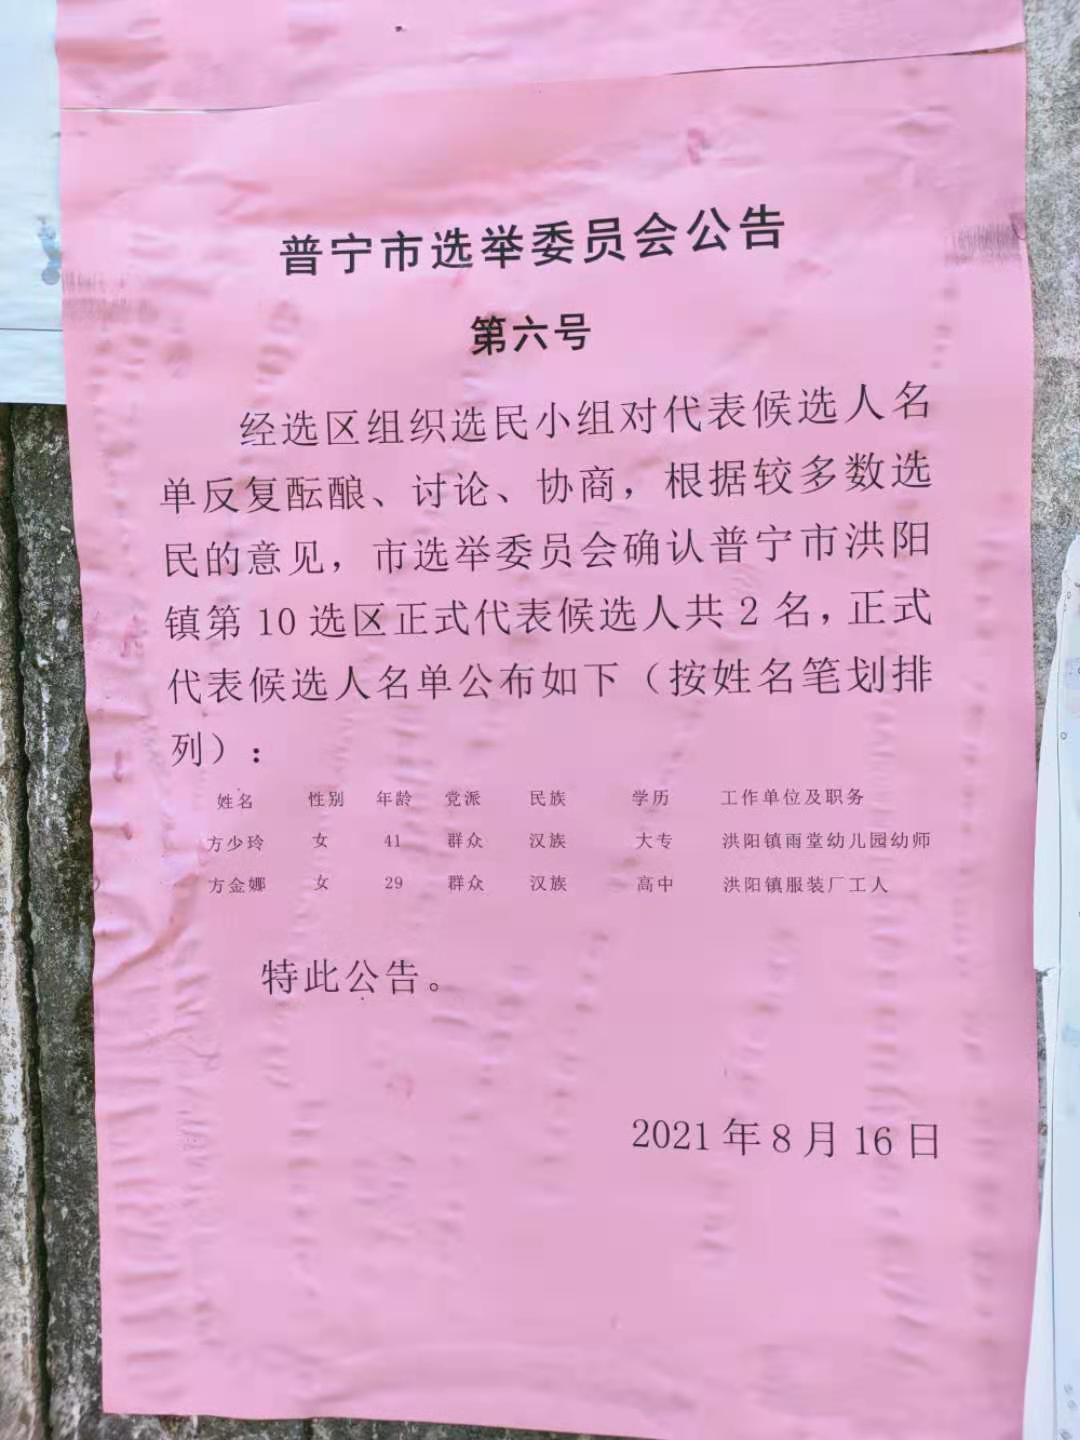 普宁市选举委员会公告
第六号
经选区组织选民小组对代表候选人名
单反复酝酿、讨论、协商，根据较多数选
民的意见，市选举委员会确认普宁市洪阳
镇第 10 选区正式代表候选人共 2 名，正式
代表候选人名单公布如下（按姓名笔划排
列）：
姓名 性别 年龄 党派 民族 学历 工作单位及职务
方少玲 女 41 群众 汉族 大专 洪阳镇雨堂幼儿园幼师
方金娜 女 29 群众 汉族 高中 洪阳镇服装厂工人
特此公告。
2021 年 8 月 16 日